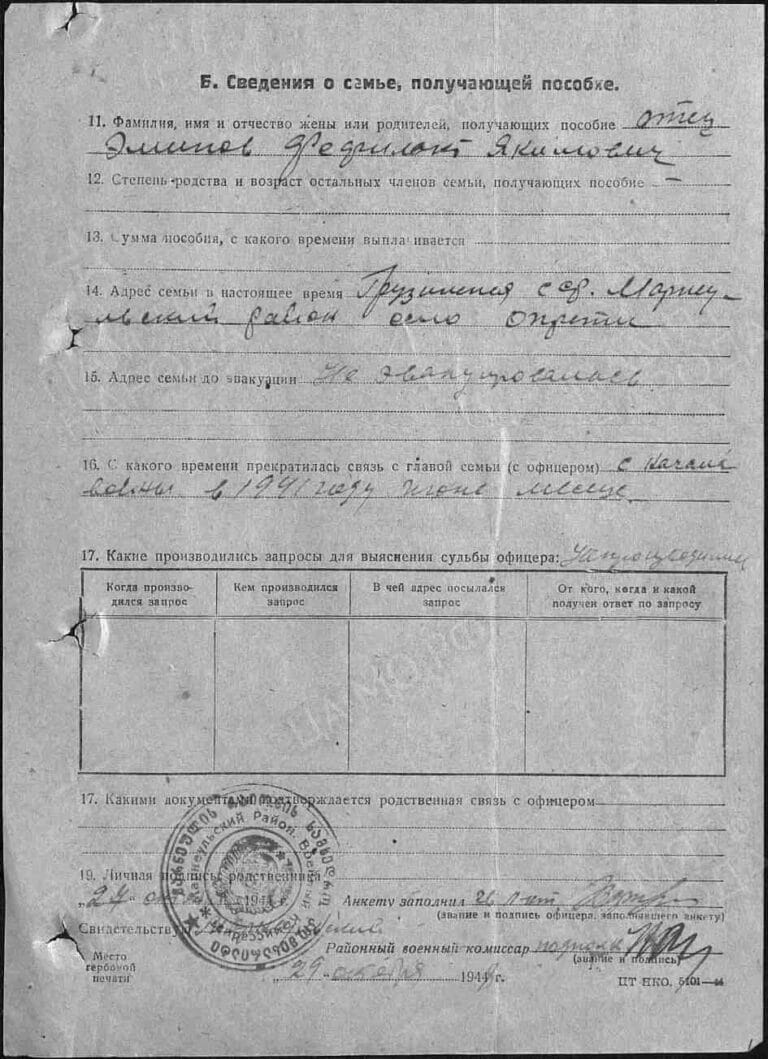 Б. Сведения о семье, получающей пособие.
11. Фамилия, имя и отчество жены или родителей, получающих пособие отец
Эминов Феофилакт Якимович
12. Степень родства и возраст остальных членов семьи, получающих пособие —
13. Сумма пособия, с какого времени выплачивается
14. Адрес семьи в настоящее время Грузинская ССР. Марнеу-
льский район село Опрети
15. Адрес семьи до эвакуации Не эвакуировалась
16. С какого времени прекратилась связь с главой семьи (с офицером) с начала
войны в 1941 году июне месяце
17. Какие производились запросы для выяснения судьбы офицера:
Когда произво-
дился запрос
Кем производился
запрос
В чей адрес посылался
запрос
От кого, когда и какой
получен ответ по запросу
ЦАМО РФ
17. Какими документами подтверждается родственная связь с офицером
19. Личная подпись родственника
„29“ 194 г.
Анкету заполнил
(звание и подпись офицера, заполнявшего анкету)
Свидетельствую
Районный военный комиссар
(звание и подпись)
Место
гербовой
печати
„29“ октября 194 г.
ЦТ НКО. 5101—44
Район. Военный
Комиссариат